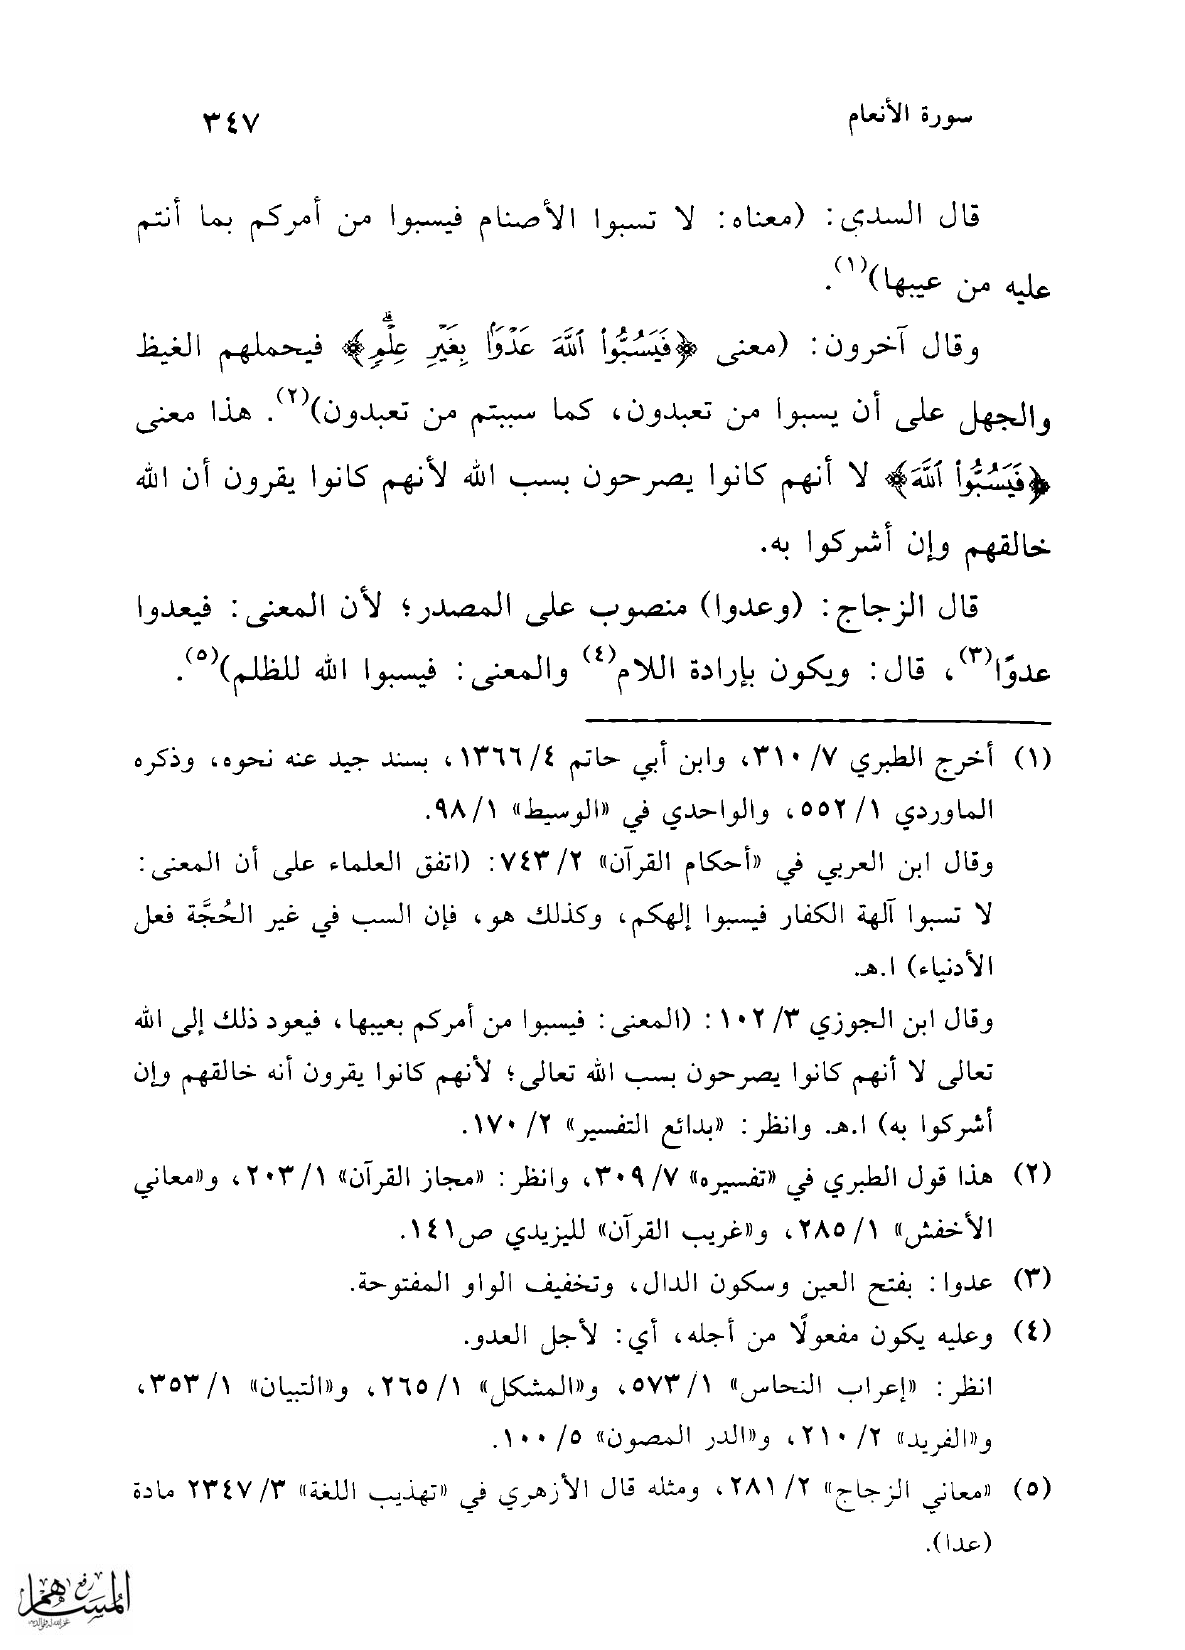 سورة الأنعام
٣٤٧
قال السدي: (معناه: لا تسبوا الأصنام فيسبوا من أمركم بما أنتم
عليه من عيبها)(١).
وقال آخرون: (معنى ﴿فَيَسُبُّوا۟ ٱللَّهَ عَدْوًۢا بِغَيْرِ عِلْمٍۗ﴾ فيحملهم الغيظ
والجهل على أن يسبوا من تعبدون، كما سببتم من تعبدون)(٢). هذا معنى
﴿فَيَسُبُّوا۟ ٱللَّهَ﴾ لا أنهم كانوا يصرحون بسب الله لأنهم كانوا يقرون أن الله
خالقهم وإن أشركوا به.
قال الزجاج: (وعدوا) منصوب على المصدر؛ لأن المعنى: فيعدوا
عدوًا(٣)، قال: ويكون بإرادة اللام(٤) والمعنى: فيسبوا الله للظلم)(٥).
(١) أخرج الطبري ٧/ ٣١٠، وابن أبي حاتم ٤/ ١٣٦٦، بسند جيد عنه نحوه، وذكره
الماوردي ١/ ٥٥٢، والواحدي في «الوسيط» ١/ ٩٨.
وقال ابن العربي في «أحكام القرآن» ٢/ ٧٤٣: (اتفق العلماء على أن المعنى:
لا تسبوا آلهة الكفار فيسبوا إلهكم، وكذلك هو، فإن السب في غير الحُجَّة فعل
الأدنياء) ا.هـ.
وقال ابن الجوزي ٣/ ١٠٢: (المعنى: فيسبوا من أمركم بعيبها، فيعود ذلك إلى الله
تعالى لا أنهم كانوا يصرحون بسب الله تعالى؛ لأنهم كانوا يقرون أنه خالقهم وإن
أشركوا به) ا.هـ. وانظر: «بدائع التفسير» ٢/ ١٧٠.
(٢) هذا قول الطبري في «تفسيره» ٧/ ٣٠٩، وانظر: «مجاز القرآن» ١/ ٢٠٣، و«معاني
الأخفش» ١/ ٢٨٥، و«غريب القرآن» لليزيدي ص١٤١.
(٣) عدوا: بفتح العين وسكون الدال، وتخفيف الواو المفتوحة.
(٤) وعليه يكون مفعولًا من أجله، أي: لأجل العدو.
انظر: «إعراب النحاس» ١/ ٥٧٣، و«المشكل» ١/ ٢٦٥، و«التبيان» ١/ ٣٥٣،
و«الفريد» ٢/ ٢١٠، و«الدر المصون» ٥/ ١٠٠.
(٥) «معاني الزجاج» ٢/ ٢٨١، ومثله قال الأزهري في «تهذيب اللغة» ٣/ ٢٣٤٧ مادة
(عدا).